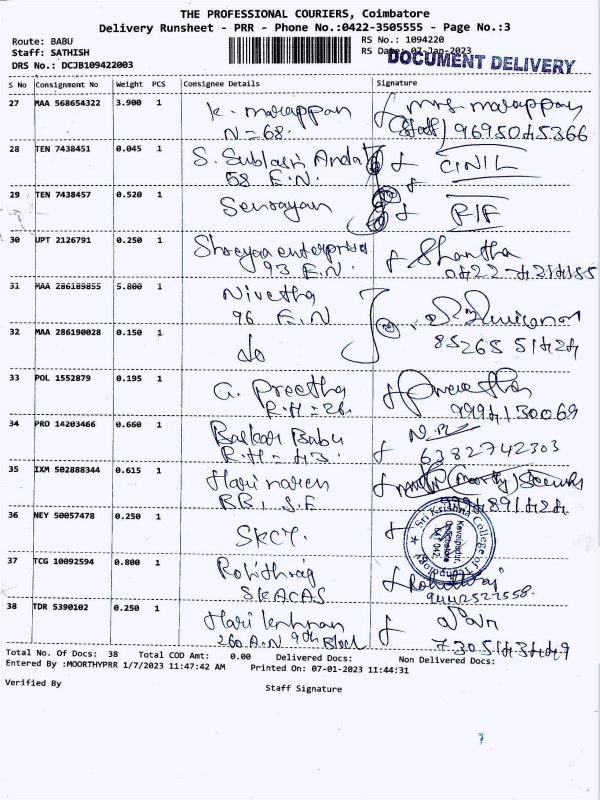 THE PROFESSIONAL COURIERS, Coimbatore
Delivery Runsheet - PRR - Phone No.:0422-3505555 - Page No.:3
Route: BABU
Staff: SATHISH
DRS No.: DCJB109422003
RS No.: 1094220
RS Date: 07-Jan-2023
DOCUMENT DELIVERY
S No Consignment No Weight PCS Consignee Details Signature
27 MAA 568654322 3.900 1 K. Marappan
N=68. (Staff) 9695045366
28 TEN 7438451 0.045 1
58 E.N. CINIL
29 TEN 7438457 0.520 1 Senrayan
30 UPT 2126791 0.250 1 Shreyaa enterprises Shantha
93 E.N.
31 MAA 286189855 5.800 1 Nivetha
96 E.N
32 MAA 286190028 0.150 1 do 85265 51424
33 POL 1552879 0.195 1 G. Preetha
R.H = 26. 9994130069
34 PRO 14203466 0.660 1 Balkar Babu
R.H = 43. 6382742303
35 IXM 502888344 0.615 1 Hari naren
BB1, S.F 9994891424
36 NEY 50057478 0.250 1 SKCT. Sri Krishna College of Technology
Kovaipudur, Coimbatore 641 042
37 TCG 10092594 0.800 1 Rohithraj Rohithraj
SKACAS 9442522558.
38 TDR 5390102 0.250 1
260 A.N 9th Block 7305143449
Total No. Of Docs: 38 Total COD Amt: 0.00 Delivered Docs: Non Delivered Docs:
Entered By :MOORTHYPRR 1/7/2023 11:47:42 AM Printed On: 07-01-2023 11:44:31
Verified By Staff Signature